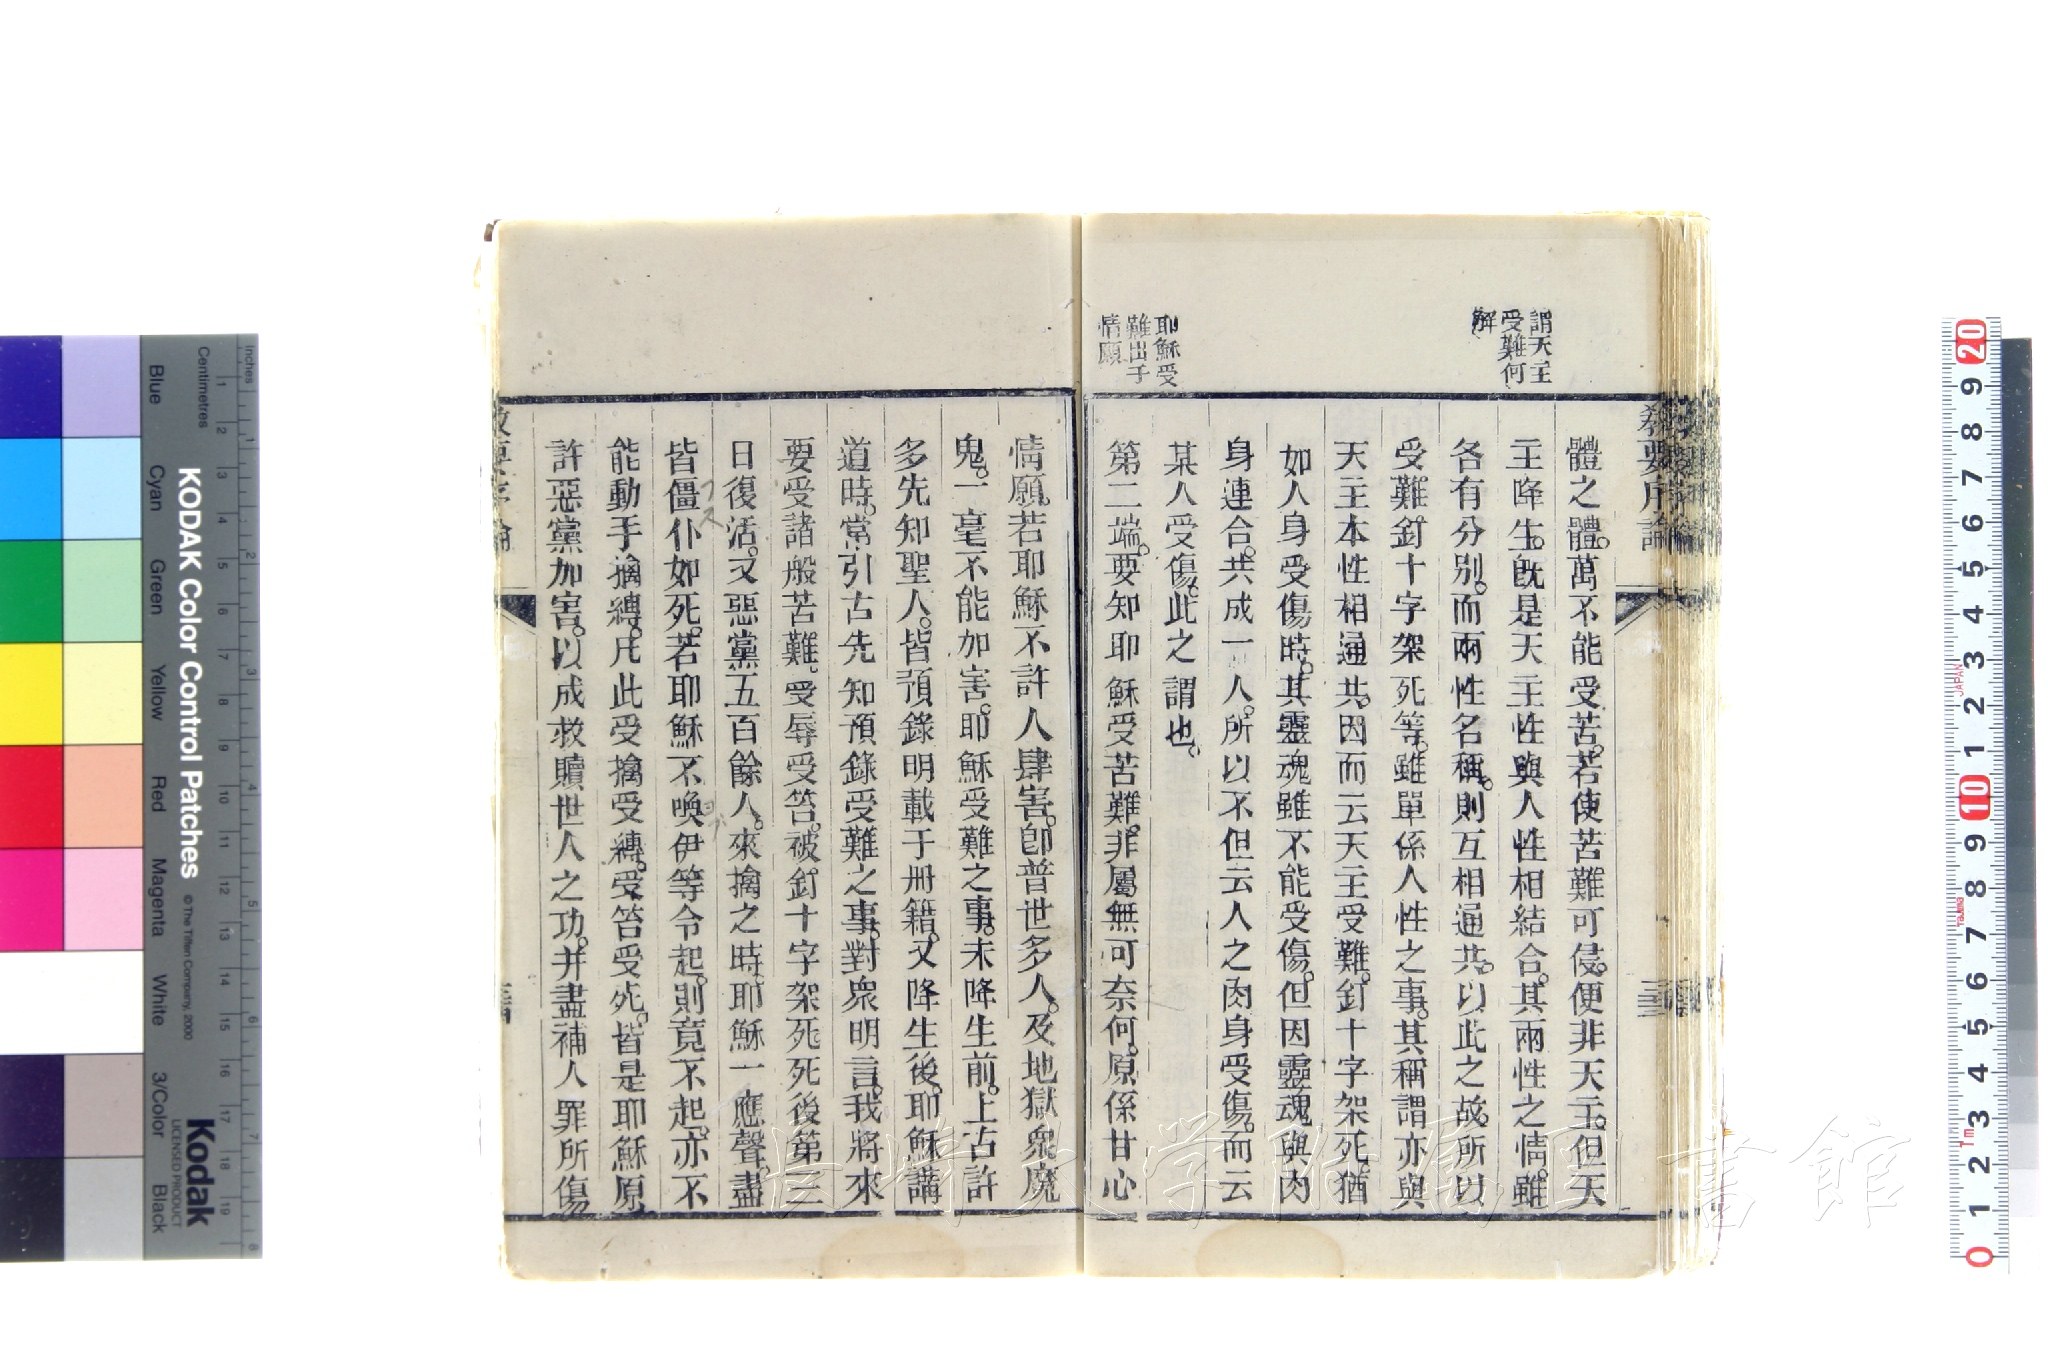 教要序論
謂天主
受難何
解
體之體。萬不能受苦。若使苦難可侵。便非天主。但天
主降生。既是天主性與人性相結合。其兩性之情。雖
各有分別。而兩性名稱。則互相通共。以此之故。所以
受難釘十字架死等。雖單係人性之事。其稱謂亦與
天主本性相通共。因而云天主受難。釘十字架死。猶
如人身受傷時。其靈魂雖不能受傷。但因靈魂與肉
身連合。共成一人。所以不但云人之肉身受傷。而云
某人受傷。此之謂也。
耶穌受
難出于
情願
第二端。要知耶穌受苦難。非屬無可奈何。原係甘心
情願。若耶穌不許人肆害。卽普世多人。及地獄衆魔
鬼。一毫不能加害。耶穌受難之事。未降生前。上古許
多先知聖人。皆預錄明載于冊籍。又降生後。耶穌講
道時。常引古先知預錄受難之事。對衆明言。我將來
要受諸般苦難。受辱受笞。被釘十字架死。死後第三
日復活。又惡黨五百餘人。來擒之時。耶穌一應聲。盡
皆僵仆如死。若耶穌不喚伊等令起。則竟不起。亦不
能動手擒縛。凡此受擒受縛。受笞受死。皆是耶穌原
許惡黨加害。以成救贖世人之功。并盡補人罪所傷
教要序論
長崎大学附属図書館
KODAK Color Control Patches
© The Tiffen Company, 2000
Kodak
LICENSED PRODUCT
Inches
Centimetres
Blue
Cyan
Green
Yellow
Red
Magenta
White
3/Color
Black